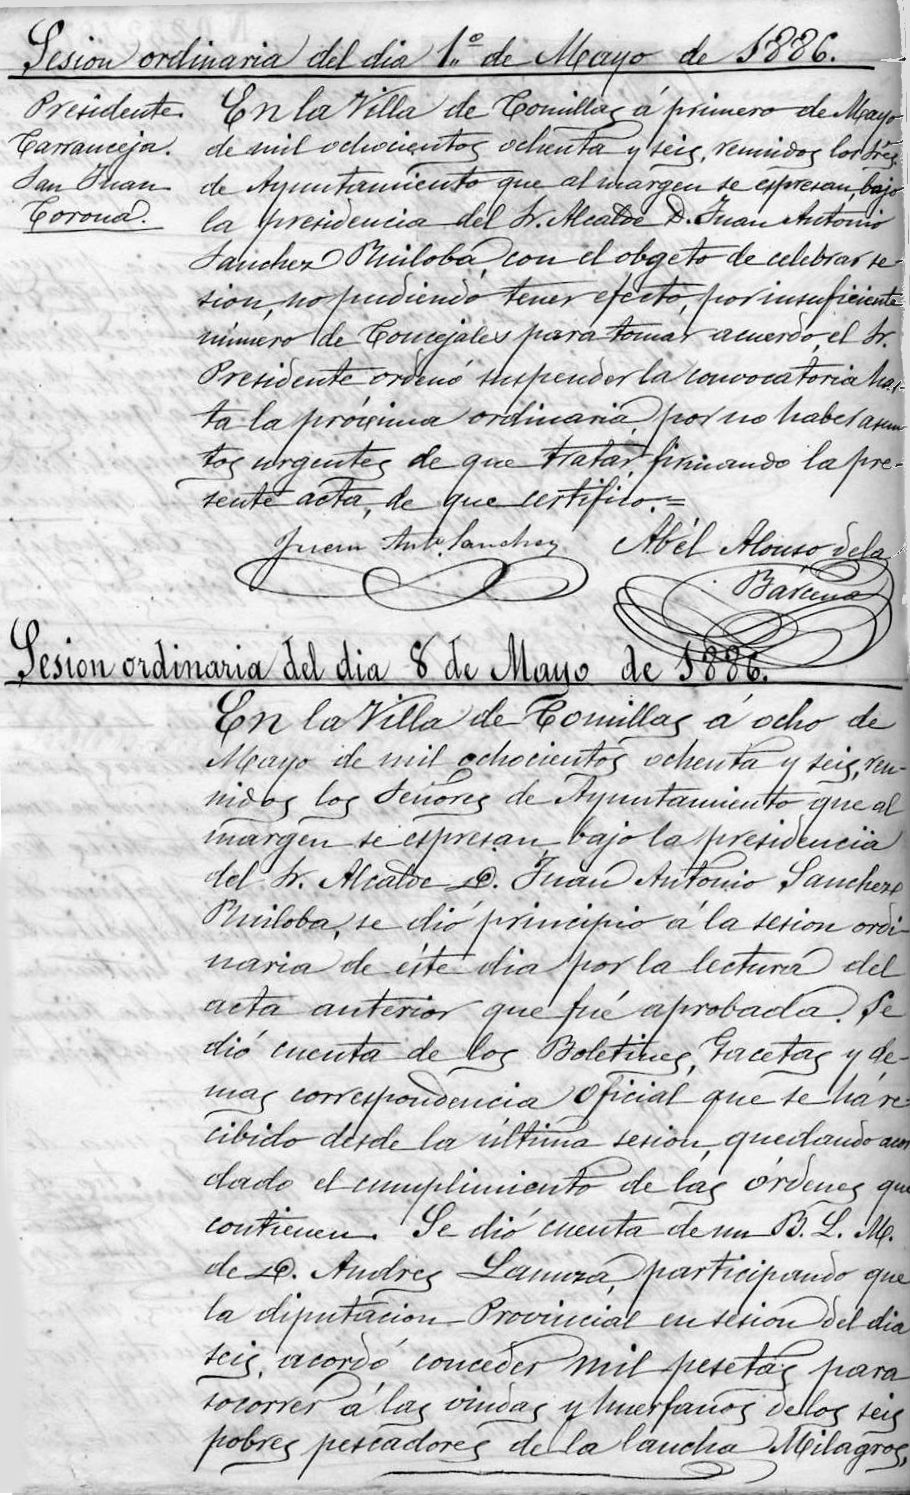 Sesion ordinaria del dia 1.º de Mayo de 1886.
Presidente
Carranceja.
San Juan
Corona.
En la Villa de Comillas á primero de Mayo
de mil ochocientos ochenta y seis, reunidos los Srés.
de Ayuntamiento que al margen se espresan, bajo
la presidencia del Sr. Alcalde D. Juan Antonio
Sanchez Ruiloba, con el obgeto de celebrar se-
sion, no pudiendo tener efecto, por insuficiente
número de Concejales para tomar acuerdo, el Sr.
Presidente ordenó suspender la convocatoria has-
ta la próxima ordinaria, por no haber asun
tos urgentes de que tratar, firmando la pre-
sente acta, de que certifico.=
Juan Ant.º Sanchez
Abél Alonso de la
Bárcena
Sesion ordinaria del dia 8 de Mayo de 1886.
En la Villa de Comillas á ocho de
Mayo de mil ochocientos ochenta y seis, reu-
nidos los Señores de Ayuntamiento que al
margen se espresan bajo la presidencia
del Sr. Alcalde D. Juan Antonio Sanchez
Ruiloba, se dió principio á la sesion ordi-
naria de éste dia por la lectura del
acta anterior que fué aprobada. Se
dió cuenta de los Boletines, Gacetas y de-
mas correspondencia oficial que se há re-
cibido desde la última sesion, quedando acor
dado el cumplimiento de las órdenes que
contienen. Se dió cuenta de un B. L. M.
de D. Andres Lanuza, participando que
la diputacion Provincial en sesion del dia
seis, acordó conceder mil pesetas para
socorrer á las viudas y huerfanos de los seis
pobres pescadores de la lancha Milagros,